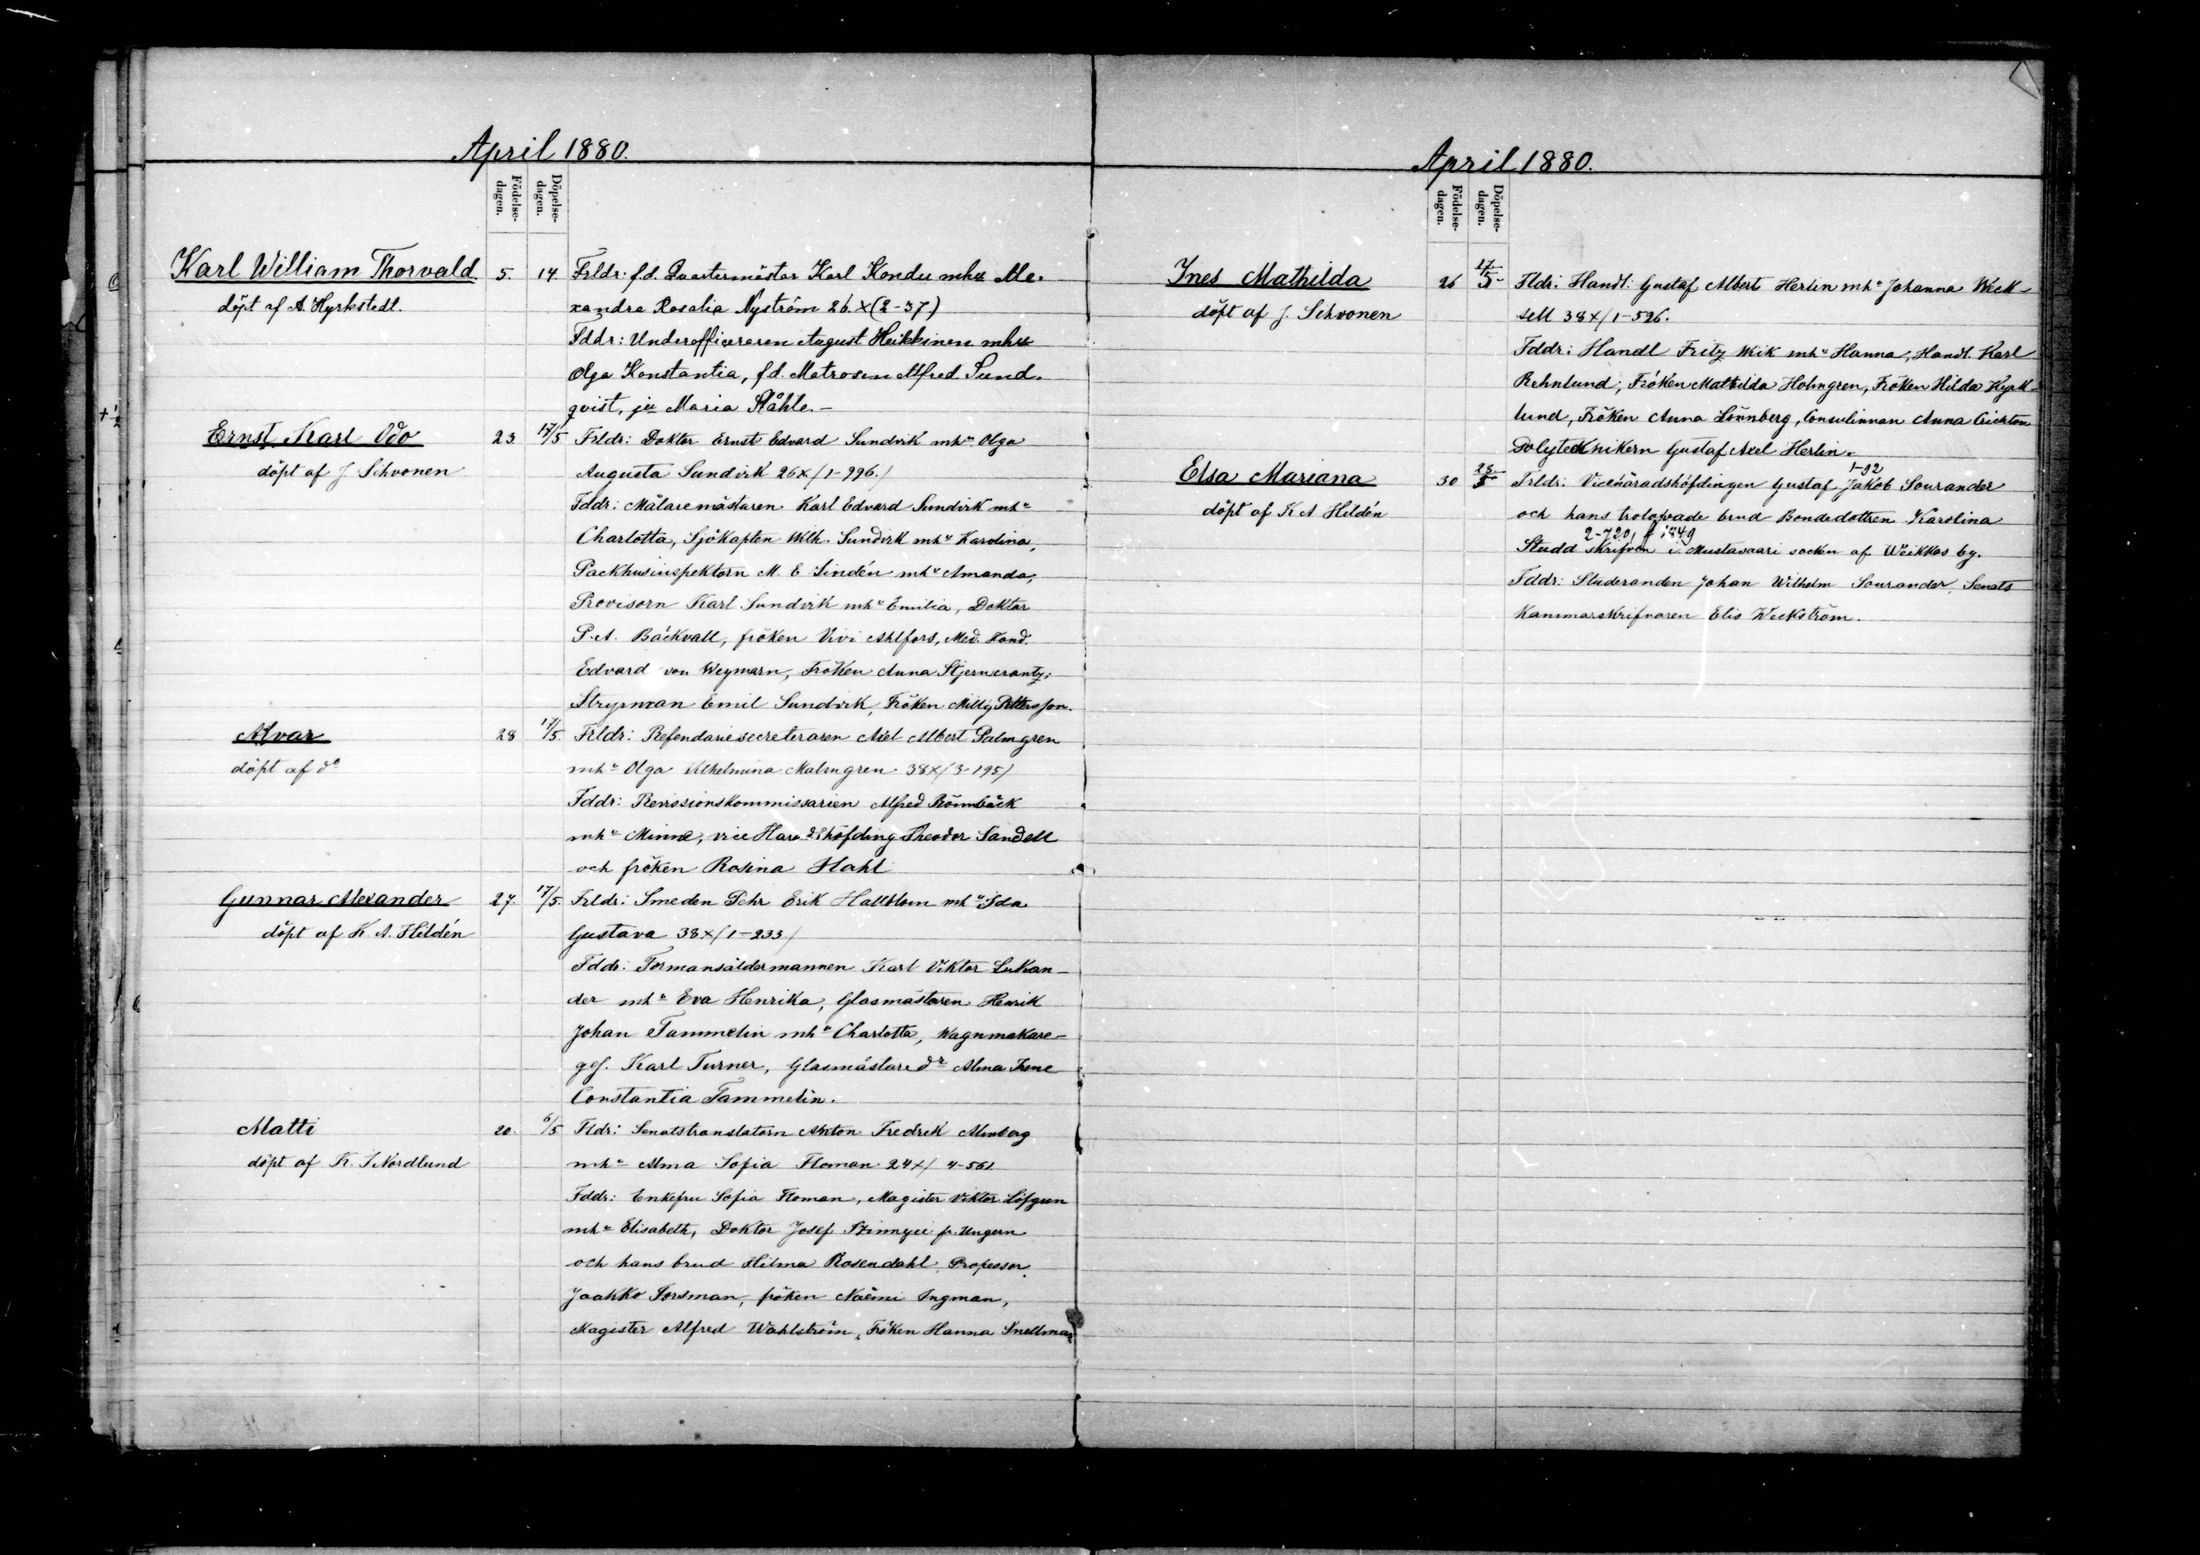 April 1880.
Födelse-dagen.
Döpelse-dagen.
Karl William Thorvald 5. 14. Frldr: f.d. Quartermästar Karl Kondu mhu Ale-
döpt af A. Hyrkstedt. xandra Rosalia Nyström 26.x(2-37)
Fddr: Underofficeraren August Heikkinen mhu
Olga Konstantia, f.d. Matrosen Alfred Sund-
qvist, Maria Ståhle.-
Ernst Karl Odo 23 17/5 Frldr: Doktor Ernst Edvard Sundvik mhu Olga
döpt af J Schvonen Augusta Sundvik 26x/1-996./
Fddr: Målaremästaren Karl Edvard Sundvik mhu
Charlotta, Sjökapten Wilh. Sundvik mhu Karolina,
Packhusinspektorn M. E Lindén mhu Amanda,
Provisorn Karl Sundvik mhu Emilia, Doktor
P.A. Bäckvall, fröken Vivi Ahlfors, Med. Kand.
Edvard von Weymarn, Fröken Anna Stjerncrantz,
Styrman Emil Sundvik, Fröken Milly Pettersson.
Alvar 28 17/5. Frldr: Refendariesecreteraren Axel Albert Palmgren
döpt af do mhu Olga Vilhelmina Malmgren 38x/3-195/
Fddr: Revissionskommissarien Alfred Rönnbäck
mhu Minna, vice Haradshöfding Theodor Sandell
och fröken Rosina Stahl
Gunnar Alexander 27. 17/5. Frldr: Smeden Pehr Erik Hallblom mhu Ida
döpt af K. A. Hildén Gustava 38x/1-233/
Fddr: Formansåldermannen Karl Viktor Lukan-
der mhu Eva Henrika, Glasmästaren Henrik
Johan Tammelin mhu Charlotta, Wagnmakare-
ges. Karl Turner, Glasmästaredr Alma Irene
Constantia Tammelin.
Matti 20. 6/5 Fldr: Senatstranslatorn Anton Fredrik Almberg
döpt af K. J Nordlund mhu Alma Sofia Floman 24x/ 4-561
Fddr: Enkefru Sofia Floman, Magister Viktor Löfgren
mhu Elisabeth, Doktor Josef Szinnyei fr. Ungern
och hans brud Hilma Rosendahl, Professor
Jaakko Forsman, fröken Naëmi Ingman,
Magister Alfred Wahlström, Fröken Hanna Snellman
April 1880.
Födelse-dagen.
Döpelse-dagen.
Ines Mathilda 26 17/5 Fldr: Handl: Gustaf Albert Herlin mhu Johanna Weck-
döpt af J. Schvonen sell 38x/1-526.
Fddr: Handl Fritz Wik mhu Hanna, Handl. Karl
Rehnlund, Fröken Mathilda Holmgren, Fröken Hilda Kyrk-
lund, Fröken Anna Lönnberg, Consulinnan Anna Crichton
Polyteknikern Gustaf Axel Herlin.
1-92
Elsa Mariana 30 28/5 Frldr: Vicehäradshöfdingen Gustaf Jakob Sourander
döpt af K A Hildén och hans trolofvade brud Bondedottren Karolina
2-720, f 1849
Studd skrifven i Mustasaari socken af Weikkas by.
Fddr: Studeranden Johan Wilhelm Sourander, Senats
Kammarskrifvaren Elis Weckström.